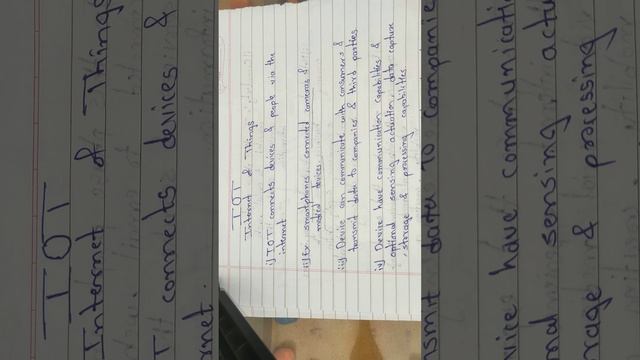 IOT
Internet of Things
i) IOT connects devices & people via the
internet
ii) for smartphones, connected cameras &
medical devices
iii) Device can communicate with consumers &
transmit data to companies & third parties
iv) Device have communication capabilities &
optional sensing, actuation, data capture
, storage & processing capabilities